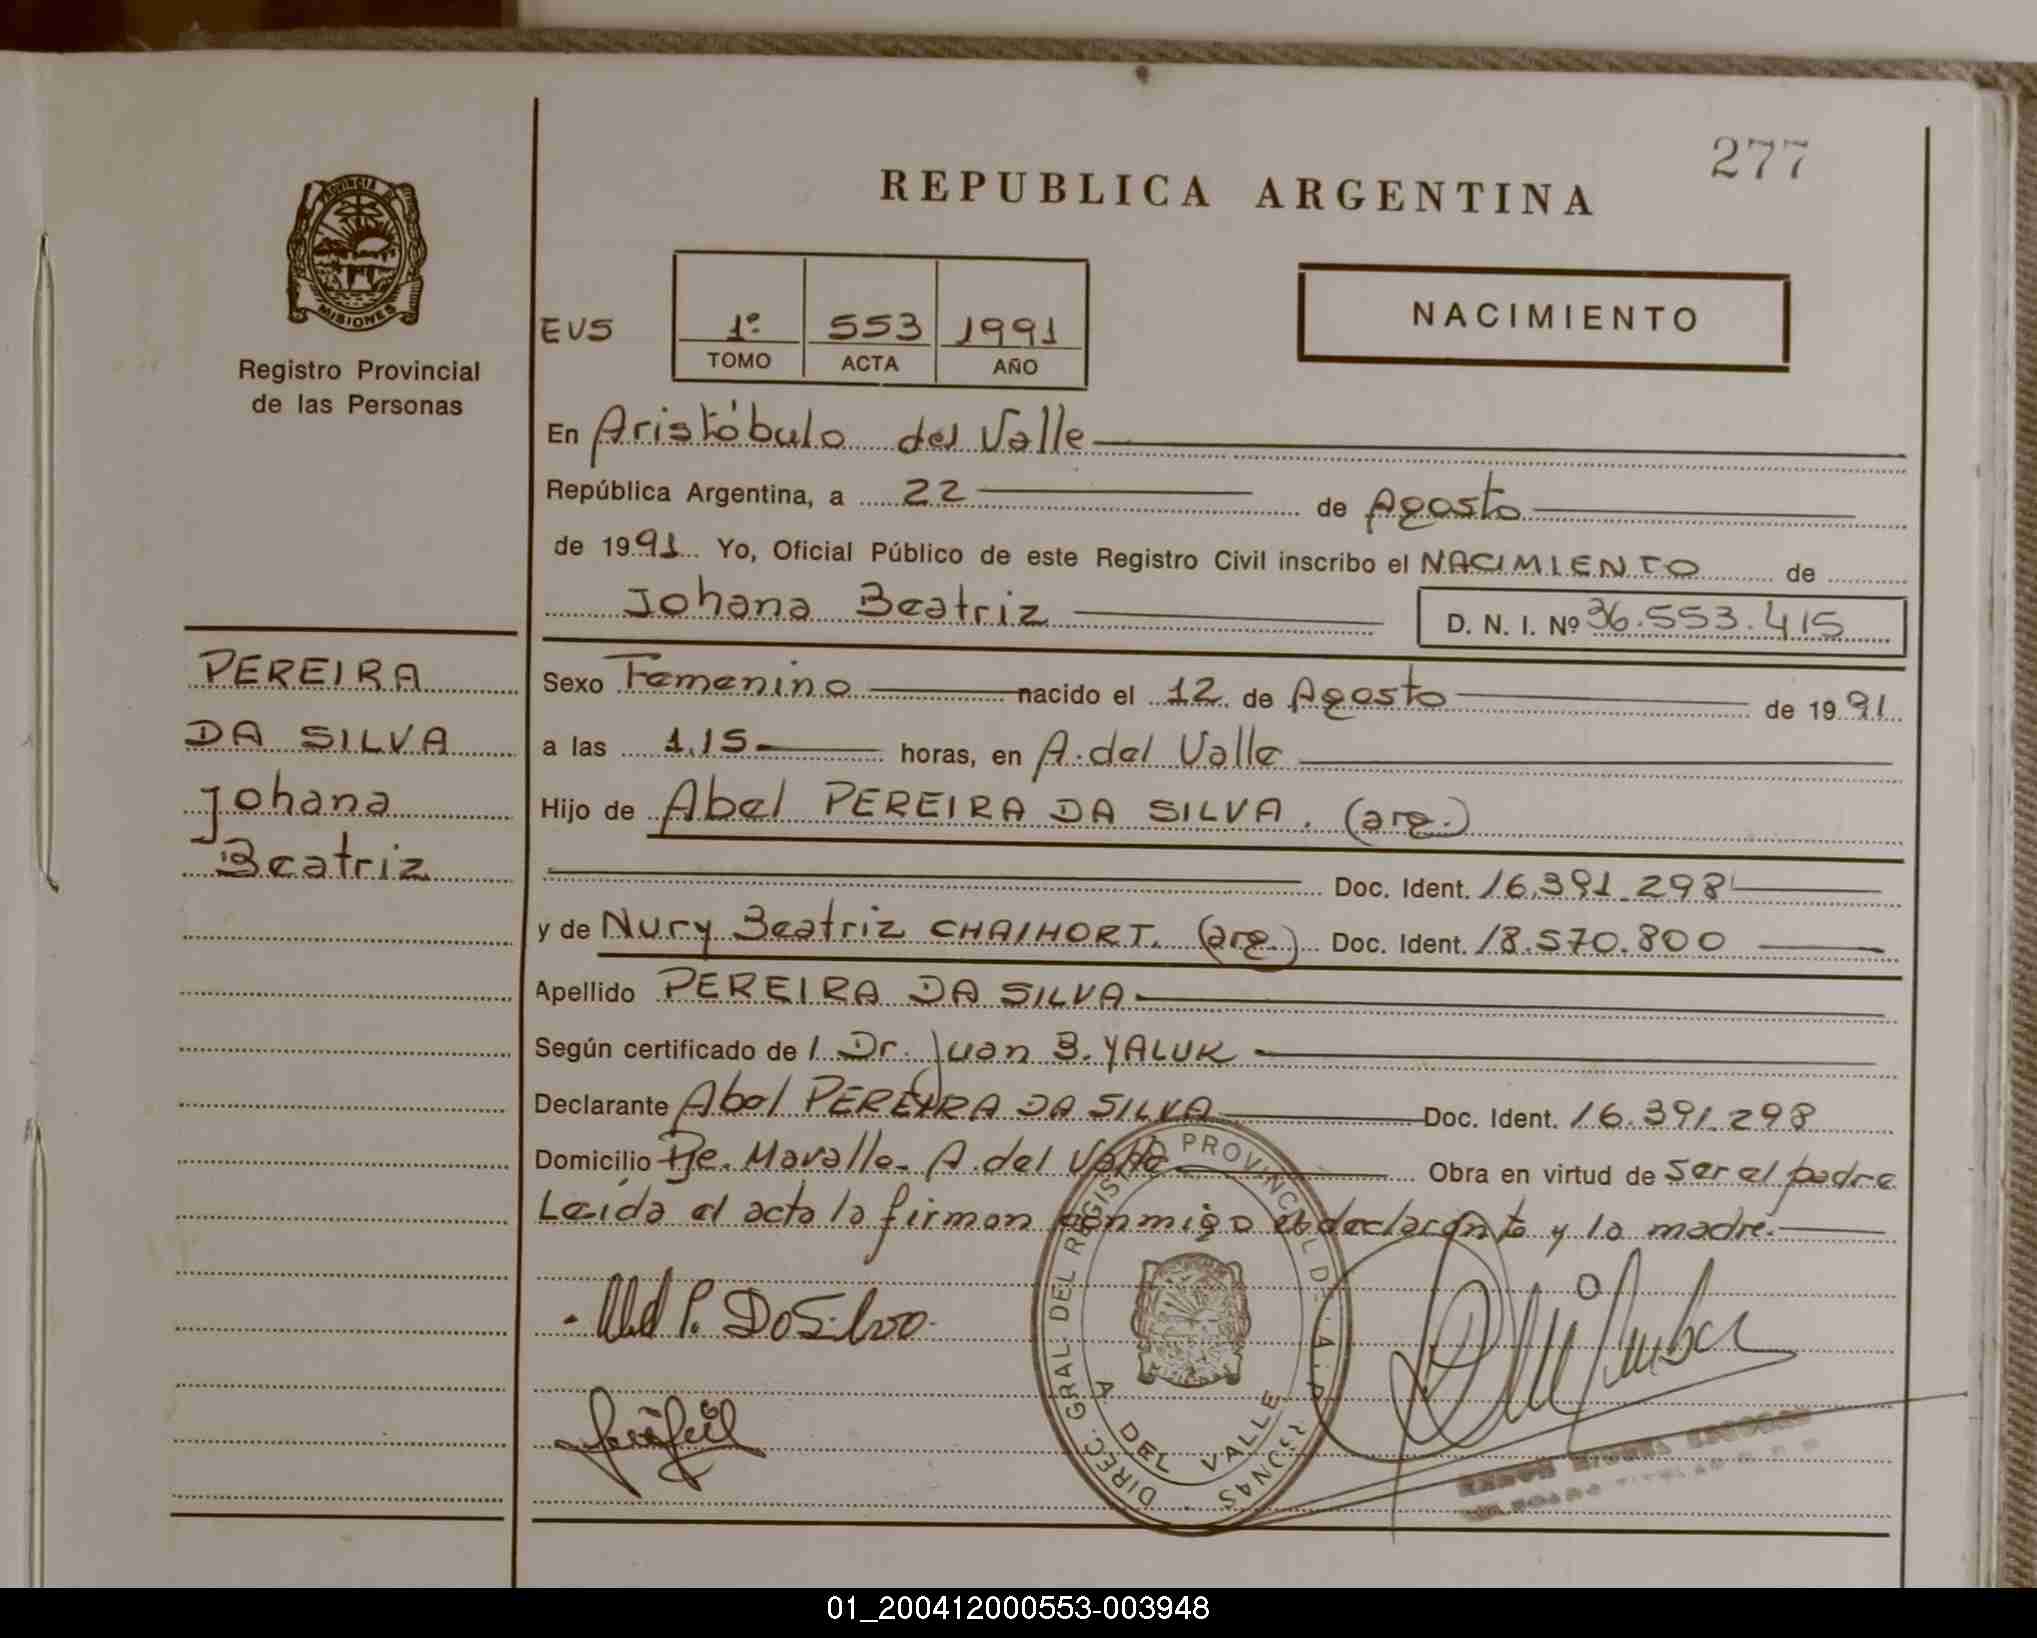 277
REPUBLICA ARGENTINA
PROVINCIA DE
MISIONES
Registro Provincial
de las Personas
EVS
1º 553 1991
TOMO ACTA AÑO
NACIMIENTO
En Aristóbulo del Valle
República Argentina, a 22 de Agosto
de 1991 Yo, Oficial Público de este Registro Civil inscribo el NACIMIENTO de
Johana Beatriz D. N. I. Nº 36.553.415
PEREIRA
DA SILVA
Johana
Beatriz
Sexo Femenino nacido el 12 de Agosto de 1991
a las 1.15 horas, en A. del Valle
Hijo de Abel PEREIRA DA SILVA. (arg.)
Doc. Ident. 16.391.298
y de Nury Beatriz CHAIHORT. (arg.) Doc. Ident. 18.570.800
Apellido PEREIRA DA SILVA
Según certificado de l Dr. Juan B. YALUK
Declarante Abel PEREYRA DA SILVA Doc. Ident. 16.391.298
Domicilio Pje. Mavalle- A. del Valle Obra en virtud de ser el padre
Leida el acta la firman conmigo el declarante y la madre.-
P. DaSilva
DIREC. GRAL. DEL REGISTRO PROVINCIAL D. L. A. P.
A. DEL VALLE
MISIONES
RAMON MIGUEL
TITULAR
01_200412000553-003948